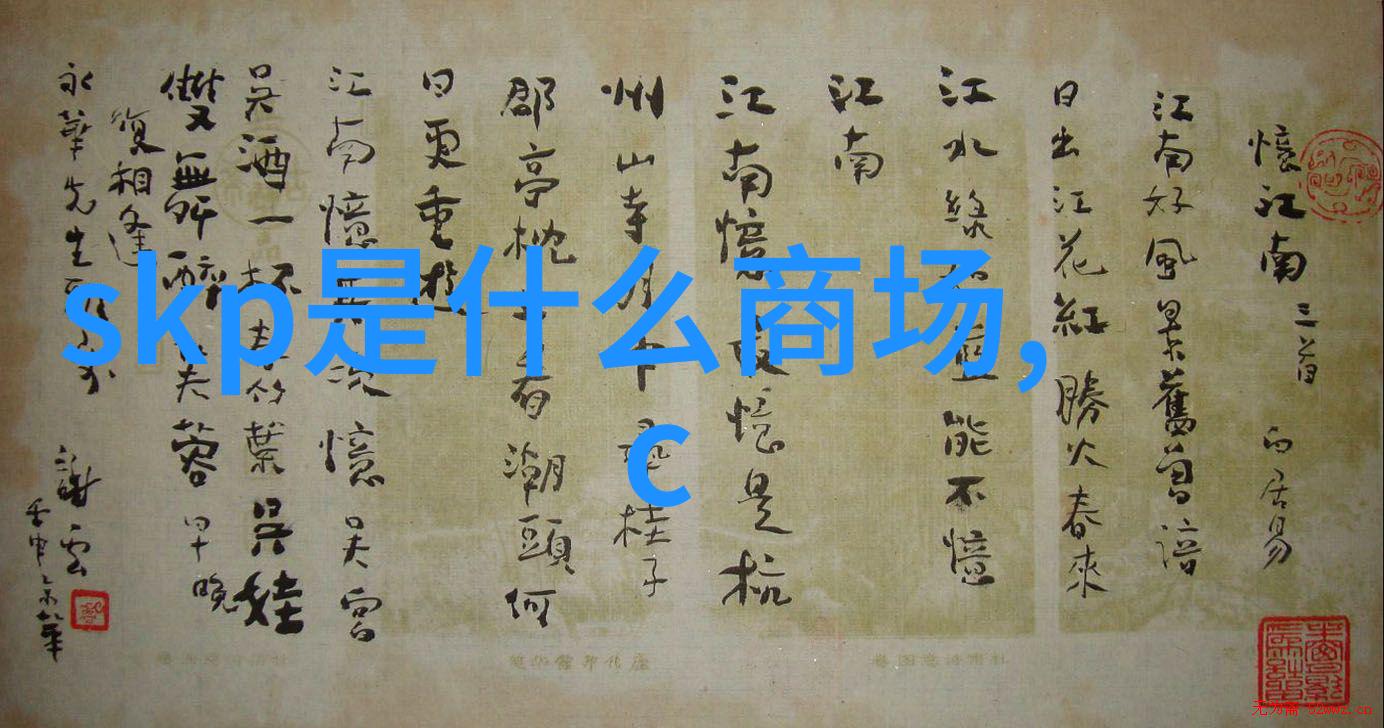 skp是什么商场,
c
憶江南 三首 白居易
江南好風景舊曾諳
日出江花紅勝火春來
江水綠藍能不憶
江南
江南憶最憶是杭
州山寺月中尋桂子
郡亭枕上看潮頭何
日更重遊
江南憶其次憶吳宮
吳酒一杯春竹葉吳娃
雙醉芙蓉早晚
復相逢
永華先生
謝雲